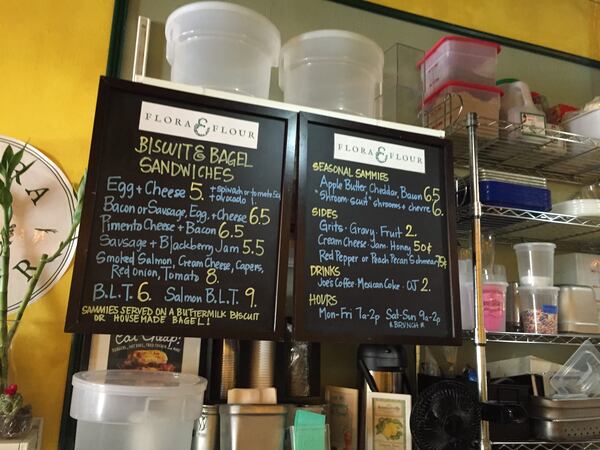 FLORA & FLOUR
BISCUIT & BAGEL
SANDWICHES
Egg + Cheese 5. + spinach or tomato 50¢
+ avocado 1.
Bacon or Sausage, Egg, + Cheese 6.5
Pimento Cheese + Bacon 6.5
Sausage + Blackberry Jam 5.5
Smoked Salmon, Cream Cheese, Capers,
Red Onion, Tomato 8.
B.L.T. 6. Salmon B.L.T. 9.
SAMMIES SERVED ON A BUTTERMILK BISCUIT
OR HOUSE MADE BAGEL!
FLORA & FLOUR
SEASONAL SAMMIES
Apple Butter, Cheddar, Bacon 6.5
"Shroom-scuit" shrooms + chevre 6.
SIDES
Grits · Gravy · Fruit 2.
Cream Cheese · Jam · Honey 50¢
Red Pepper or Peach Pecan Schmear 75¢
DRINKS
Joe's Coffee · Mexican Coke · OJ 2.
HOURS
Mon-Fri 7a-2p Sat-Sun 9a-2p
& BRUNCH!!!
RA
R
Eat Cheap